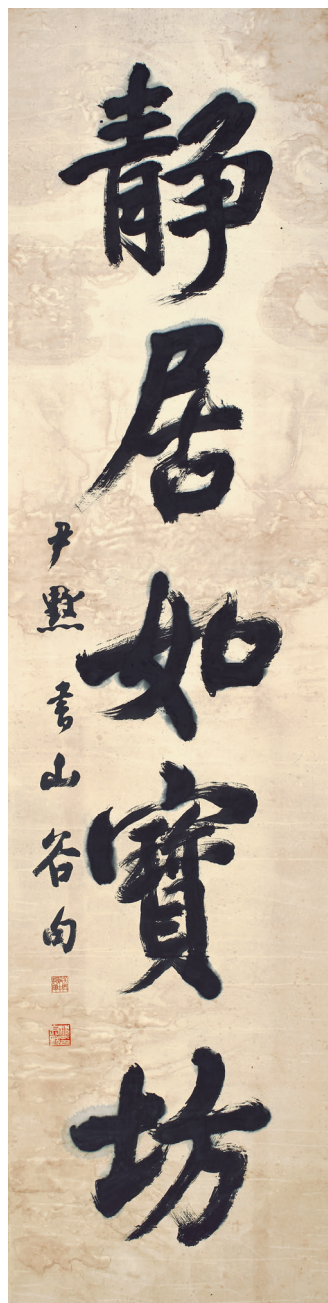 靜居如寶坊
尹默書山谷句